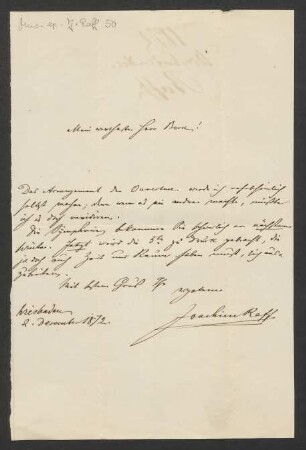 Mus. ep. J. Raff 50
Mein werthester Herr
Das Arrangement der Ouverture werde ich
selbst machen, denn wenn es ein anderer machte, müßte
ich es doch revidiren.
Die Symphonie bekommen Sie im nächsten
Winter. Jetzt wird die 5te zu Druck gebracht, die
ja doch auch Zeit und Raum haben muß, sich
Mit bestem Gruß Ihr
ergebener
Wiesbaden
2. December 1872.
Joachim Raff